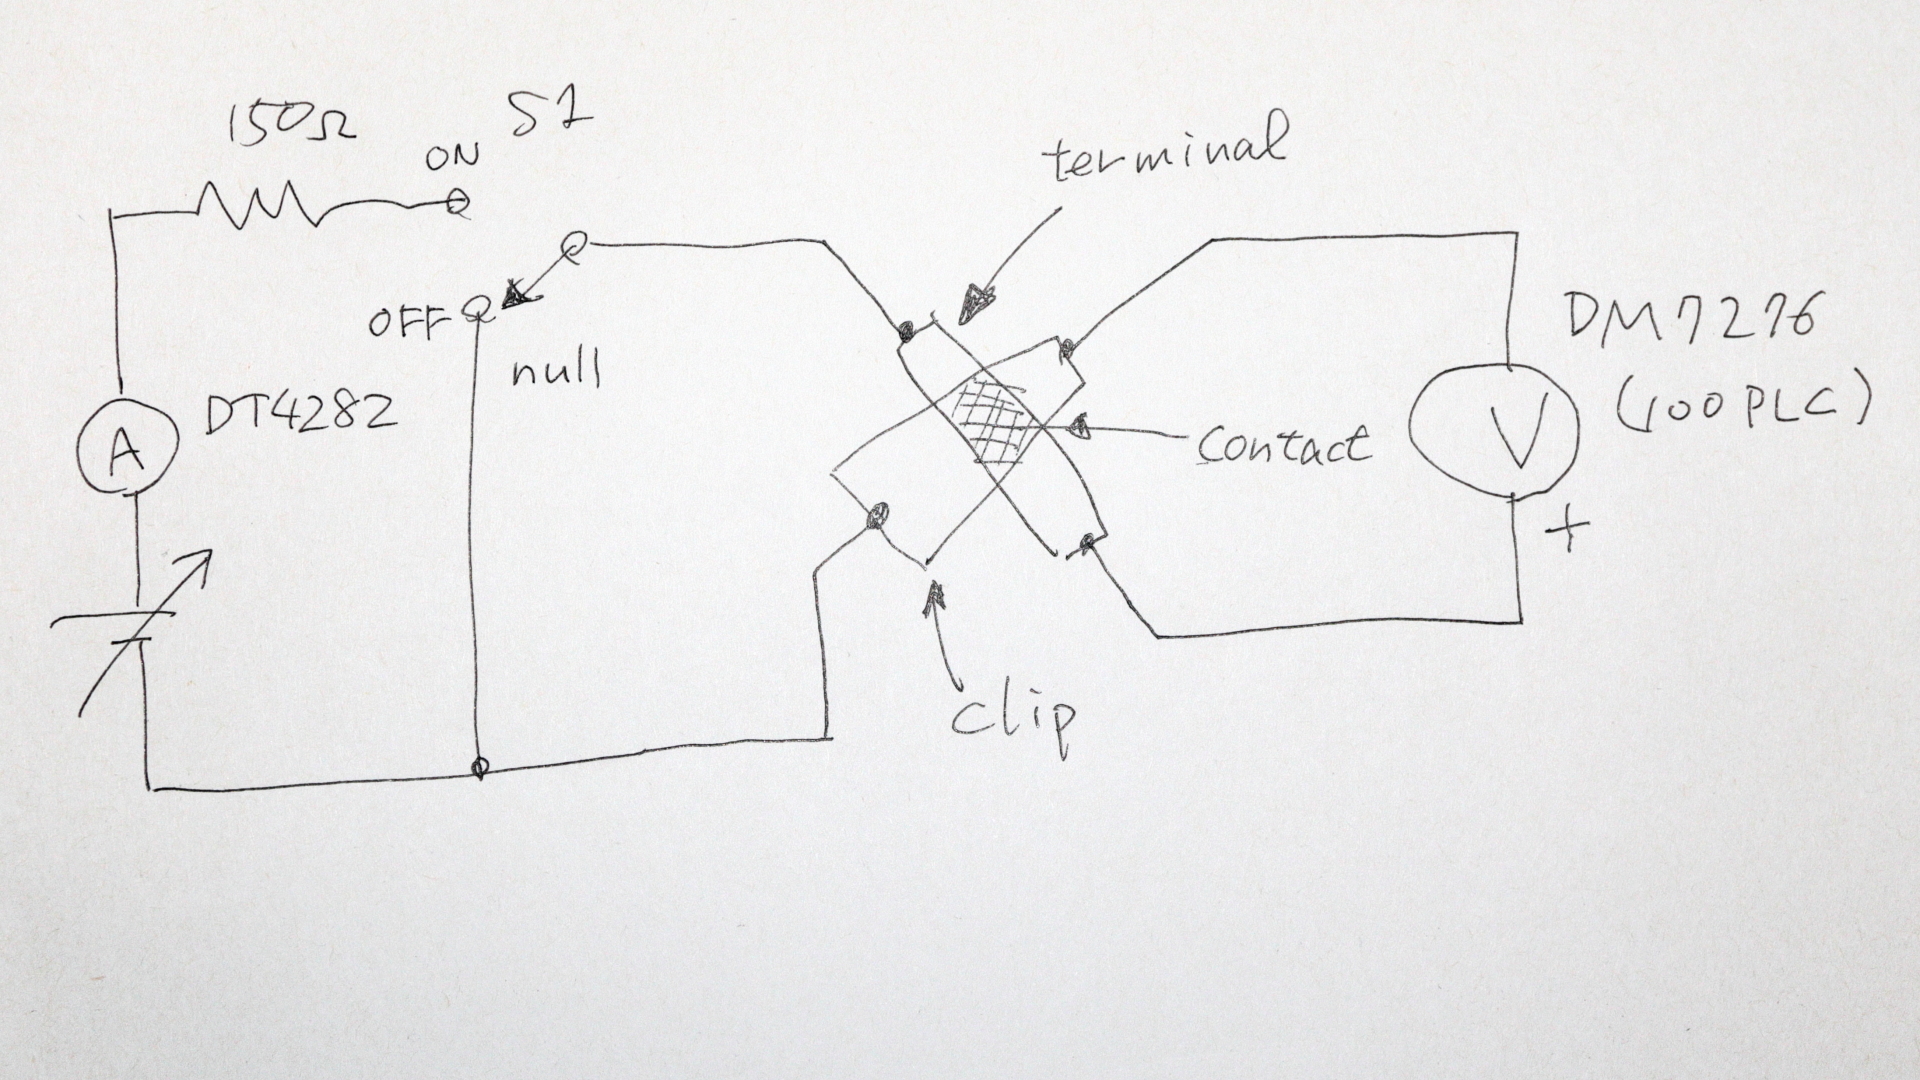 150Ω
S1
ON
OFF
null
DT4282
A
terminal
contact
clip
DM7276
(100PLC)
V
+